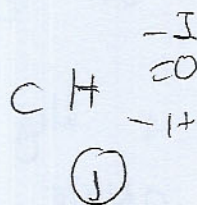 -I
=O
C H
-H
J